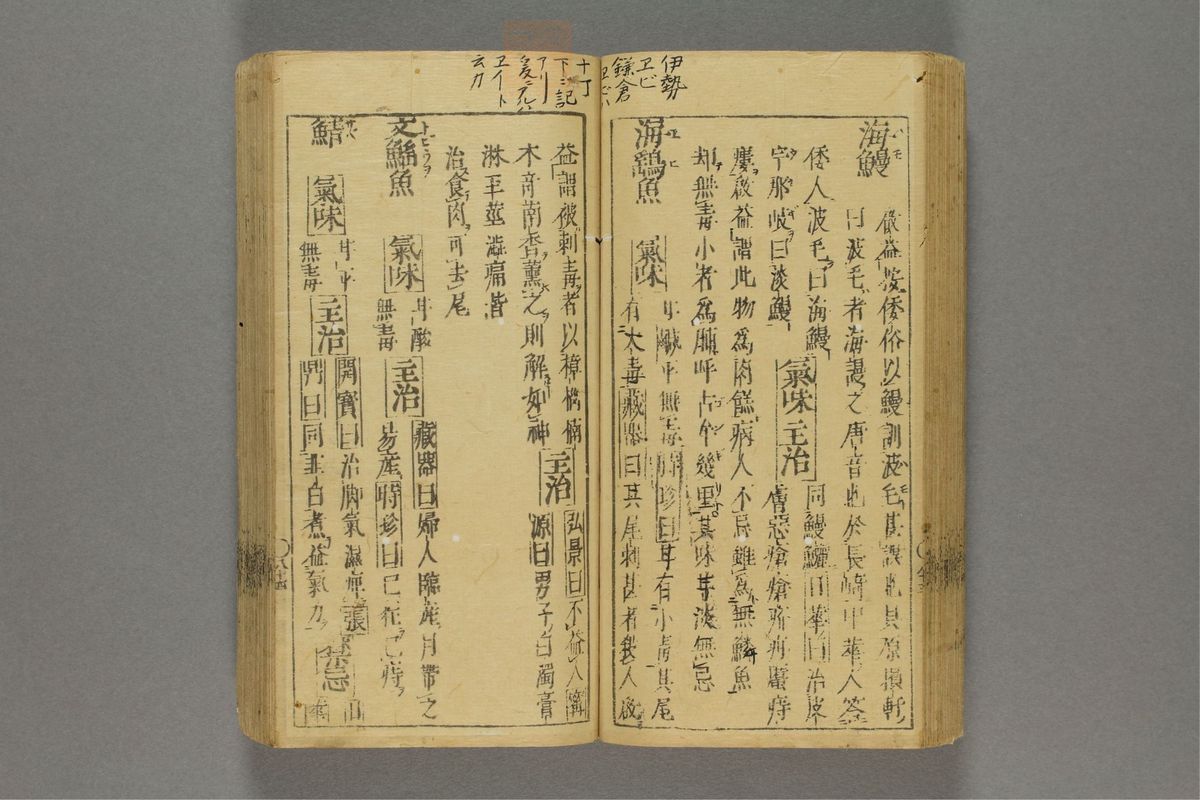 伊勢
ヱビ
鎌倉
ヱビハ
海鰻
益按倭俗以鰻訓波毛甚誤也其原損軒
曰波毛者海謾之唐音也於長崎中華人答
倭人波毛曰海鰻
宇那岐曰淡鰻
氣味
主治
同鰻鱺日華曰治皮
膚惡瘡疥疳䘌痔
益謂此物為肉糕病人不忌雖為無鱗魚
却無毒小者為脯呼占幾里其味甘淡無忌
海鷂魚
氣味
甘鹹平無毒時珍曰
有小毒其尾
有大毒藏器曰其尾刺甚者
十丁
下ニ記
アリ
ヱイト
云カ
益謂被刺毒者以樟
木奇南香薫之則解如神
主治
弘景曰不益人
源曰男子白濁膏
淋玉莖澁痛皆
治食肉可去尾
文鰩魚
氣味
甘酸
無毒
主治
藏器曰婦人臨産月帶之
易産時珍曰已狂已痔
鯖
氣味
甘平
無毒
主治
開寶曰治脚氣濕痺
同韭白煮益氣力
禁忌
八十四